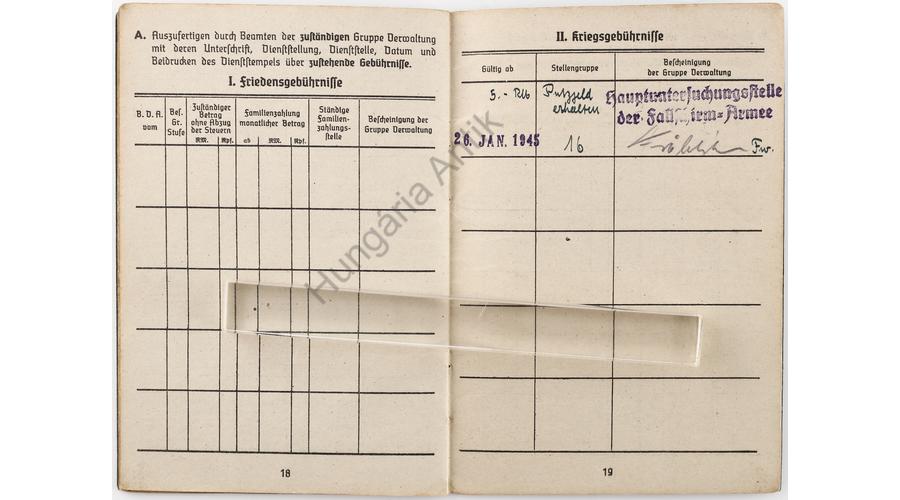 A. Auszufertigen durch Beamten der zuständigen Gruppe Verwaltung
mit deren Unterschrift, Dienststellung, Dienststelle, Datum und
Beidrucken des Dienststempels über zustehende Gebührnisse.
I. Friedensgebührnisse
B. D. A.
vom
Bes.
Gr.
Stufe
Zuständiger
Betrag
ohne Abzug
der Steuern
RM.
Rpf.
Familienzahlung
monatlicher Betrag
ab
RM.
Rpf.
Ständige
Familien-
zahlungs-
stelle
Bescheinigung der
Gruppe Verwaltung
18
II. Kriegsgebührnisse
Gültig ab
Stellengruppe
Bescheinigung
der Gruppe Verwaltung
5.- RM Putzgeld
erhalten
Hauptuntersuchungsstelle
der Fallschirm-Armee
26. JAN. 1945
16
Fw.
19
Hungária Antik